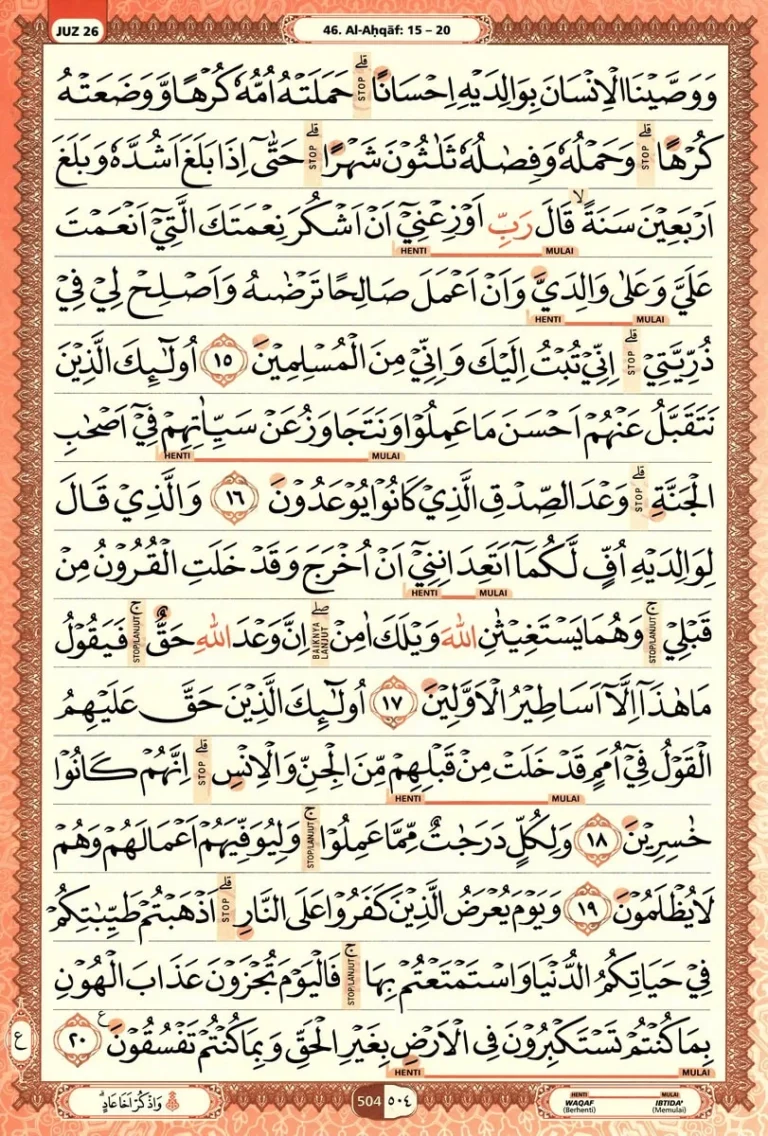 JUZ 26
46. Al-Aḥqāf: 15 – 20
وَوَصَّيْنَا الْاِنْسَانَ بِوَالِدَيْهِ اِحْسَانًا ۗ قلى STOP حَمَلَتْهُ اُمُّهٗ كُرْهًا وَّوَضَعَتْهُ
كُرْهًا ۗ قلى STOP وَحَمْلُهٗ وَفِصٰلُهٗ ثَلٰثُوْنَ شَهْرًا ۗ قلى STOP حَتّٰىٓ اِذَا بَلَغَ اَشُدَّهٗ وَبَلَغَ
اَرْبَعِيْنَ سَنَةً ۙ قَالَ رَبِّ اَوْزِعْنِيْٓ اَنْ اَشْكُرَ نِعْمَتَكَ الَّتِيْٓ اَنْعَمْتَ
HENTI MULAI
عَلَيَّ وَعَلٰى وَالِدَيَّ وَاَنْ اَعْمَلَ صَالِحًا تَرْضٰىهُ وَاَصْلِحْ لِيْ فِيْ
HENTI MULAI
ذُرِّيَّتِيْ ۗ قلى STOP اِنِّيْ تُبْتُ اِلَيْكَ وَاِنِّيْ مِنَ الْمُسْلِمِيْنَ ١٥ اُولٰۤىِٕكَ الَّذِيْنَ
نَتَقَبَّلُ عَنْهُمْ اَحْسَنَ مَا عَمِلُوْا وَنَتَجَاوَزُ عَنْ سَيِّاٰتِهِمْ فِيْٓ اَصْحٰبِ
HENTI MULAI
الْجَنَّةِ ۗ قلى STOP وَعْدَ الصِّدْقِ الَّذِيْ كَانُوْا يُوْعَدُوْنَ ١٦ وَالَّذِيْ قَالَ
لِوَالِدَيْهِ اُفٍّ لَّكُمَآ اَتَعِدَانِنِيْٓ اَنْ اُخْرَجَ وَقَدْ خَلَتِ الْقُرُوْنُ مِنْ
HENTI MULAI
قَبْلِيْ ۚ ج STOP/LANJUT وَهُمَا يَسْتَغِيْثٰنِ اللّٰهَ وَيْلَكَ اٰمِنْ ۖ صلى BAIKNYA LANJUT اِنَّ وَعْدَ اللّٰهِ حَقٌّ ۚ ج STOP/LANJUT فَيَقُوْلُ
مَا هٰذَآ اِلَّآ اَسَاطِيْرُ الْاَوَّلِيْنَ ١٧ اُولٰۤىِٕكَ الَّذِيْنَ حَقَّ عَلَيْهِمُ
الْقَوْلُ فِيْٓ اُمَمٍ قَدْ خَلَتْ مِنْ قَبْلِهِمْ مِّنَ الْجِنِّ وَالْاِنْسِ ۗ قلى STOP اِنَّهُمْ كَانُوْا
HENTI MULAI
خٰسِرِيْنَ ١٨ وَلِكُلٍّ دَرَجٰتٌ مِّمَّا عَمِلُوْا ۚ ج STOP/LANJUT وَلِيُوَفِّيَهُمْ اَعْمَالَهُمْ وَهُمْ
لَا يُظْلَمُوْنَ ١٩ وَيَوْمَ يُعْرَضُ الَّذِيْنَ كَفَرُوْا عَلَى النَّارِ ۗ قلى STOP اَذْهَبْتُمْ طَيِّبٰتِكُمْ
فِيْ حَيَاتِكُمُ الدُّنْيَا وَاسْتَمْتَعْتُمْ بِهَا ۚ ج STOP/LANJUT فَالْيَوْمَ تُجْزَوْنَ عَذَابَ الْهُوْنِ
بِمَا كُنْتُمْ تَسْتَكْبِرُوْنَ فِى الْاَرْضِ بِغَيْرِ الْحَقِّ وَبِمَا كُنْتُمْ تَفْسُقُوْنَ ࣖ ٢٠
HENTI MULAI
ع
وَاذْكُرْ اَخَا عَادٍۗ
504 ٥٠٤
HENTI WAQAF (Berhenti)
MULAI IBTIDA' (Memulai)